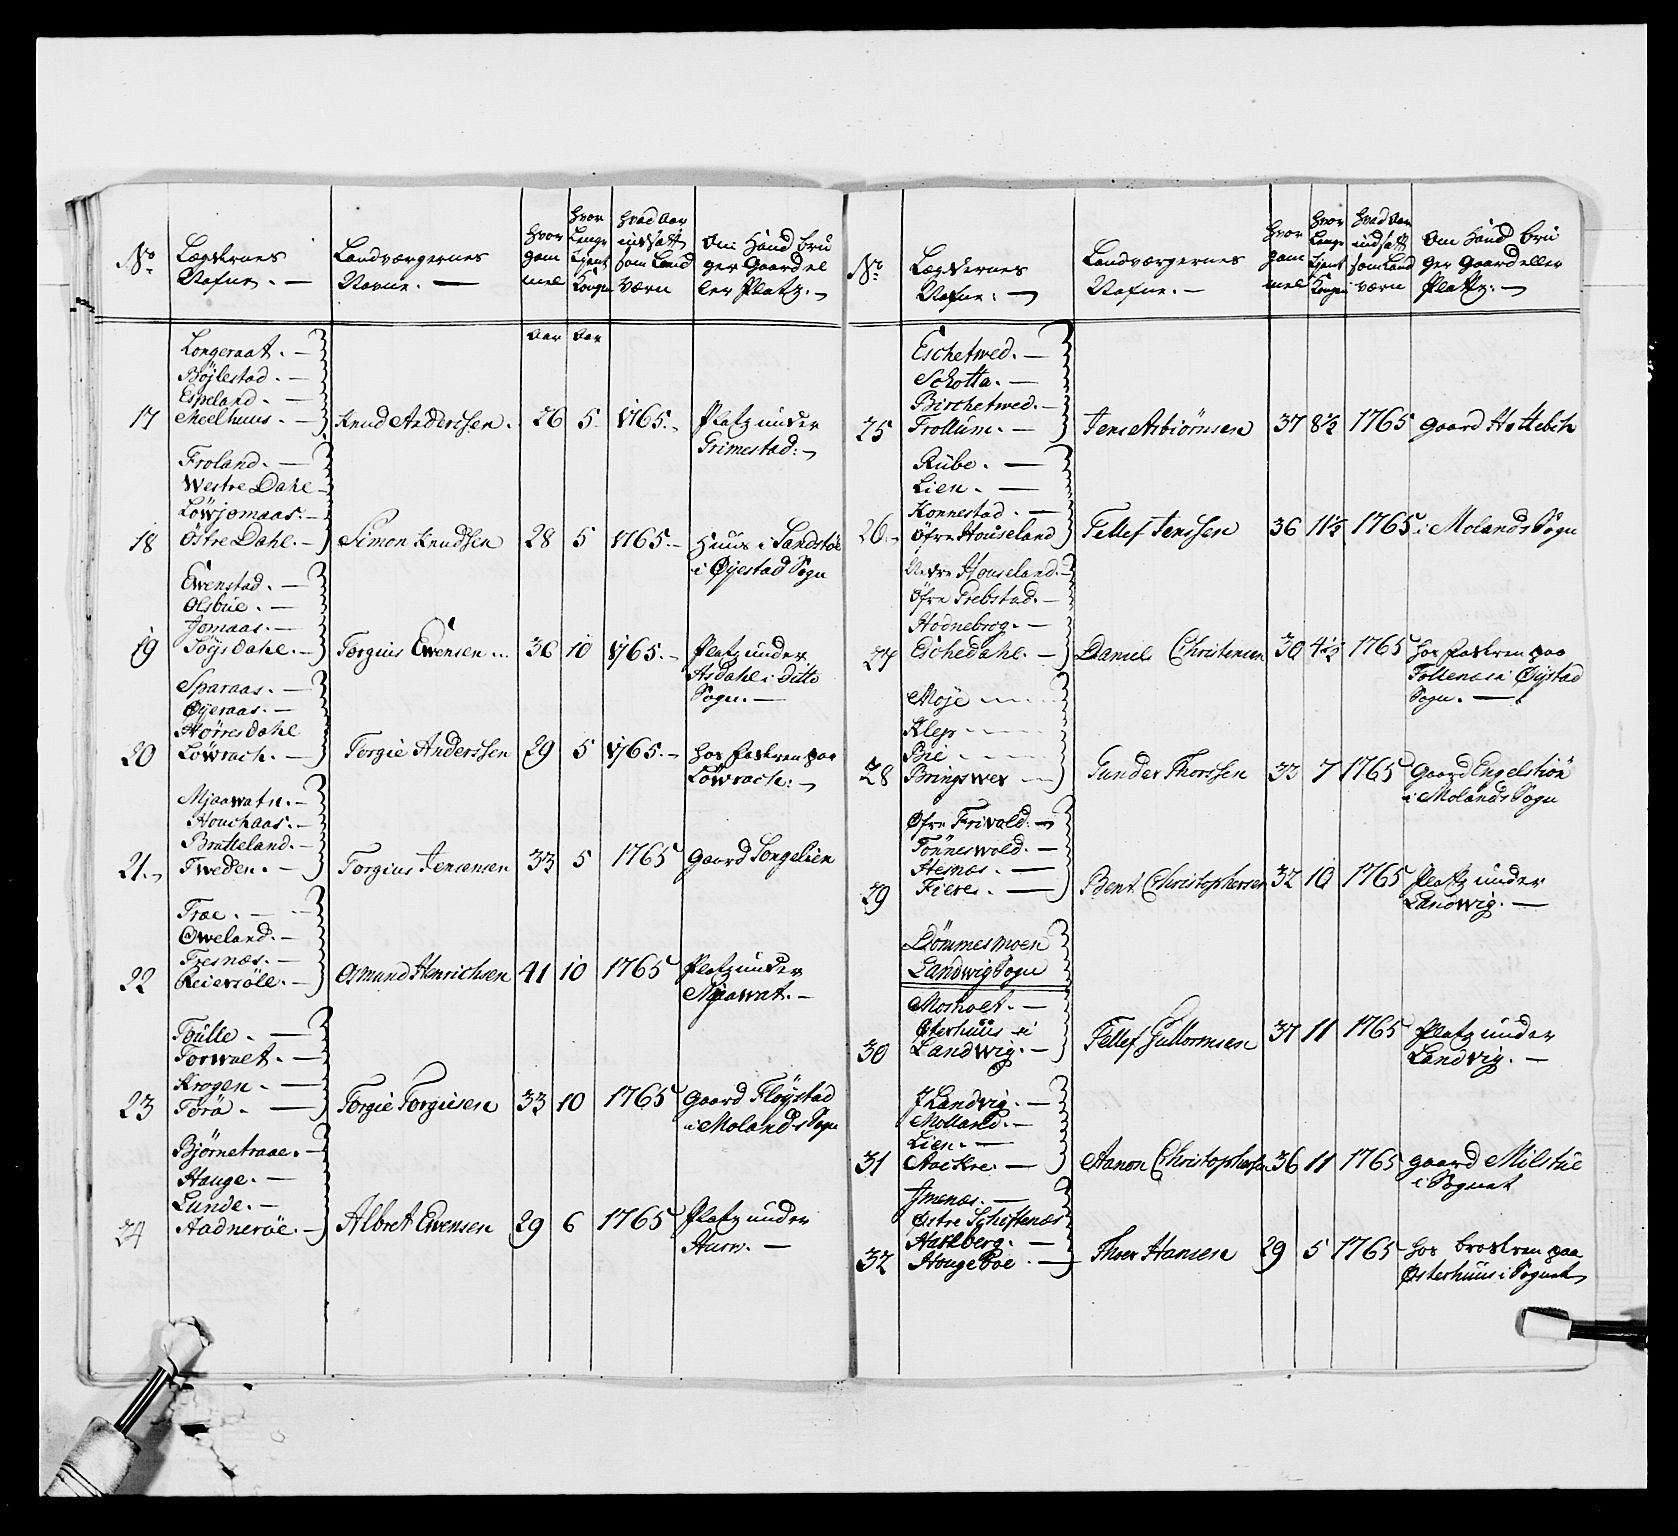 No.
Lægdernes
Nafne. —
Landværgernes
Navne. —
Hvor
gam
mel
Hvor
Lenge
tjent
Kongen
Hvad Aar
indsatt
som Land
værn
Om Hand bru
ger Gaard el
ler Platz. —
Aar Aar
Longeraat. —
Böjlestad. —
Espeland. —
17 Meelhuus. — Knud Anderssen. 26 5 1765. Platz under
Grimestad. —
Froland. —
Westre Dahl —
Löwjomaas. —
18 Östre Dahl. — Simon Knudsen 28 5 1765. — Huus i Sandstöe
i Øyestad Sogn
Ewenstad. —
Olsbue. —
Jomaas. —
19 Töÿs dahl. — Torgius Ewensen 36 10 1765. — Platz under
Asdahl i ditto
Sogn. —
Sparaas. —
Øyeraas. —
Hörresdahl
20 Löwrach. — Torgie Anderssen 29 5 1765. — hos fadren paa
Löwrach: —
Mjaawatn. —
Houchaas. —
Bratteland. —
21. Tweden. — Torgius Jensensen 33 5 1765 Gaard Songelien
Trae. —
Oweland. —
Tresnæs. —
22 Reiersöle. — Osmund Henrichsen 41 10 1765 Platz under
Mjaawat. —
Toülle. —
Torwaet. —
Krogen. —
23 Törå. — Torgie Torgiusen 33 10 1765 Gaard Flöystad
i Molands Sogn
Bjørnetraae. —
Hauge. —
Lunde. —
24 Aadneröe. — Albret Ewensen 29 6 1765 Platz under
No.
Lægdernes
Nafne. —
Landværgernes
Nafne. —
Hvor
gam
mel
Hvor
Lange
tjent
Kongen
Hvad Aar
indsatt
som Land
værn
Om Hand bru
ger Gaard eller
Platz. —
Eschetwed. —
Schotta. —
Birchetwed. —
25 Trollum. — Jens Asbiörnsen 37 8½ 1765 Gaard Hottebek
Rübe. —
Lien. —
Konnestad. —
26. Öfre Houseland Tellef Jenssen 36 11½ 1765 i Molands Sogn
Nedre Houseland. —
Öfre Trebstad. —
Hodnebrog. —
27 Eschedahl. — Daniel Christensen 30 4½ 1765 hos fadren paa
Follenæs i Øistad
Sogn. —
Moje
Klep
Bie
28 Bringswer Gunder Thorssen 33 7 1765 Gaard Engelstiön
i Molands Sogn
Øfre Friwold. —
Tönneswold. —
Hesnæs. —
29 Fieres. — Bent Christophersen 32 10 1765 Platz under
Landwig. —
Dömmesmoen
Landwig Sogn
Morholt. —
Østerhuus i
30 Landwig. — Tellef Gullormsen 37 11 1765 Platz under
Landvig. —
J Landvig. —
Molland. —
Lien. —
31 Aaekre. — Aanon Christophersen 36 11 1765 gaard Milstüe
i Sognet
Imenæs. —
Østre Schiftenæs
Haslberg. —
32 Hougeboe. — Thoer Hansen 29 5 1765 hos brodren paa
Østerhuus i Sognet